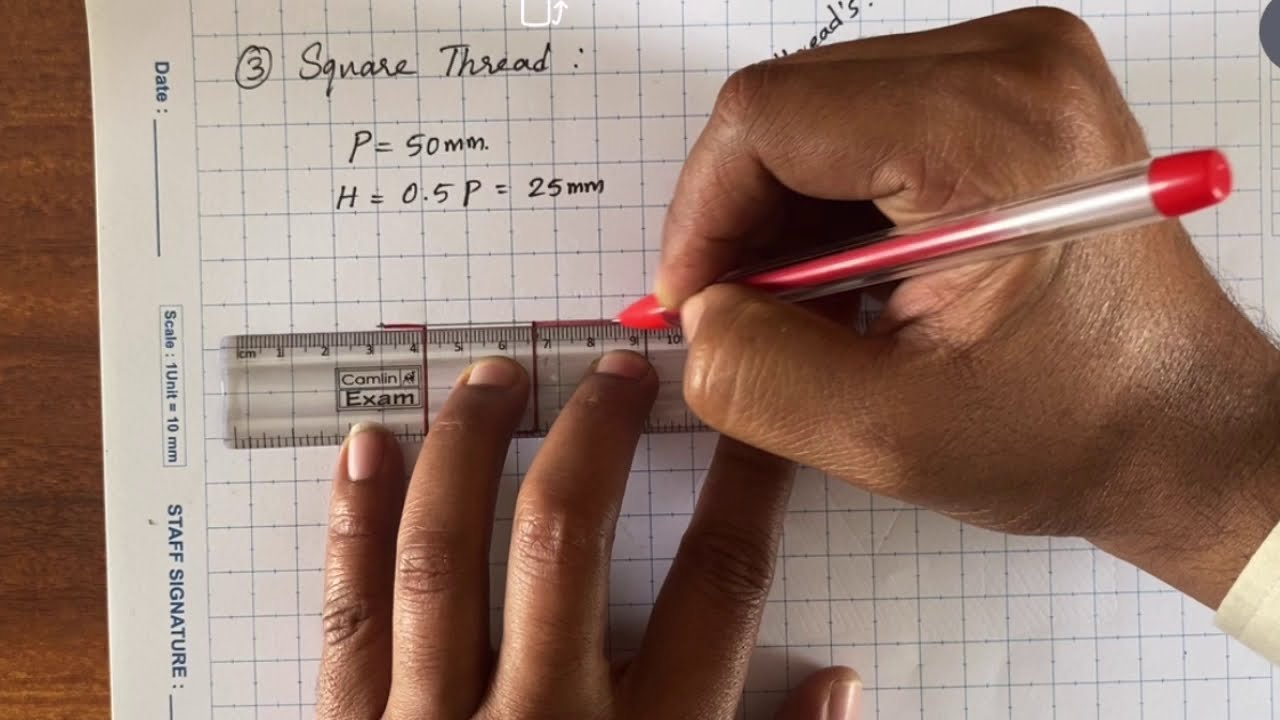 ③ Square Thread :
P = 50mm.
H = 0.5 P = 25mm
Date :
Scale : 1Unit = 10 mm
STAFF SIGNATURE :
cm 1 2 3 4 5 6 7 8 9 10
Camlin
Exam